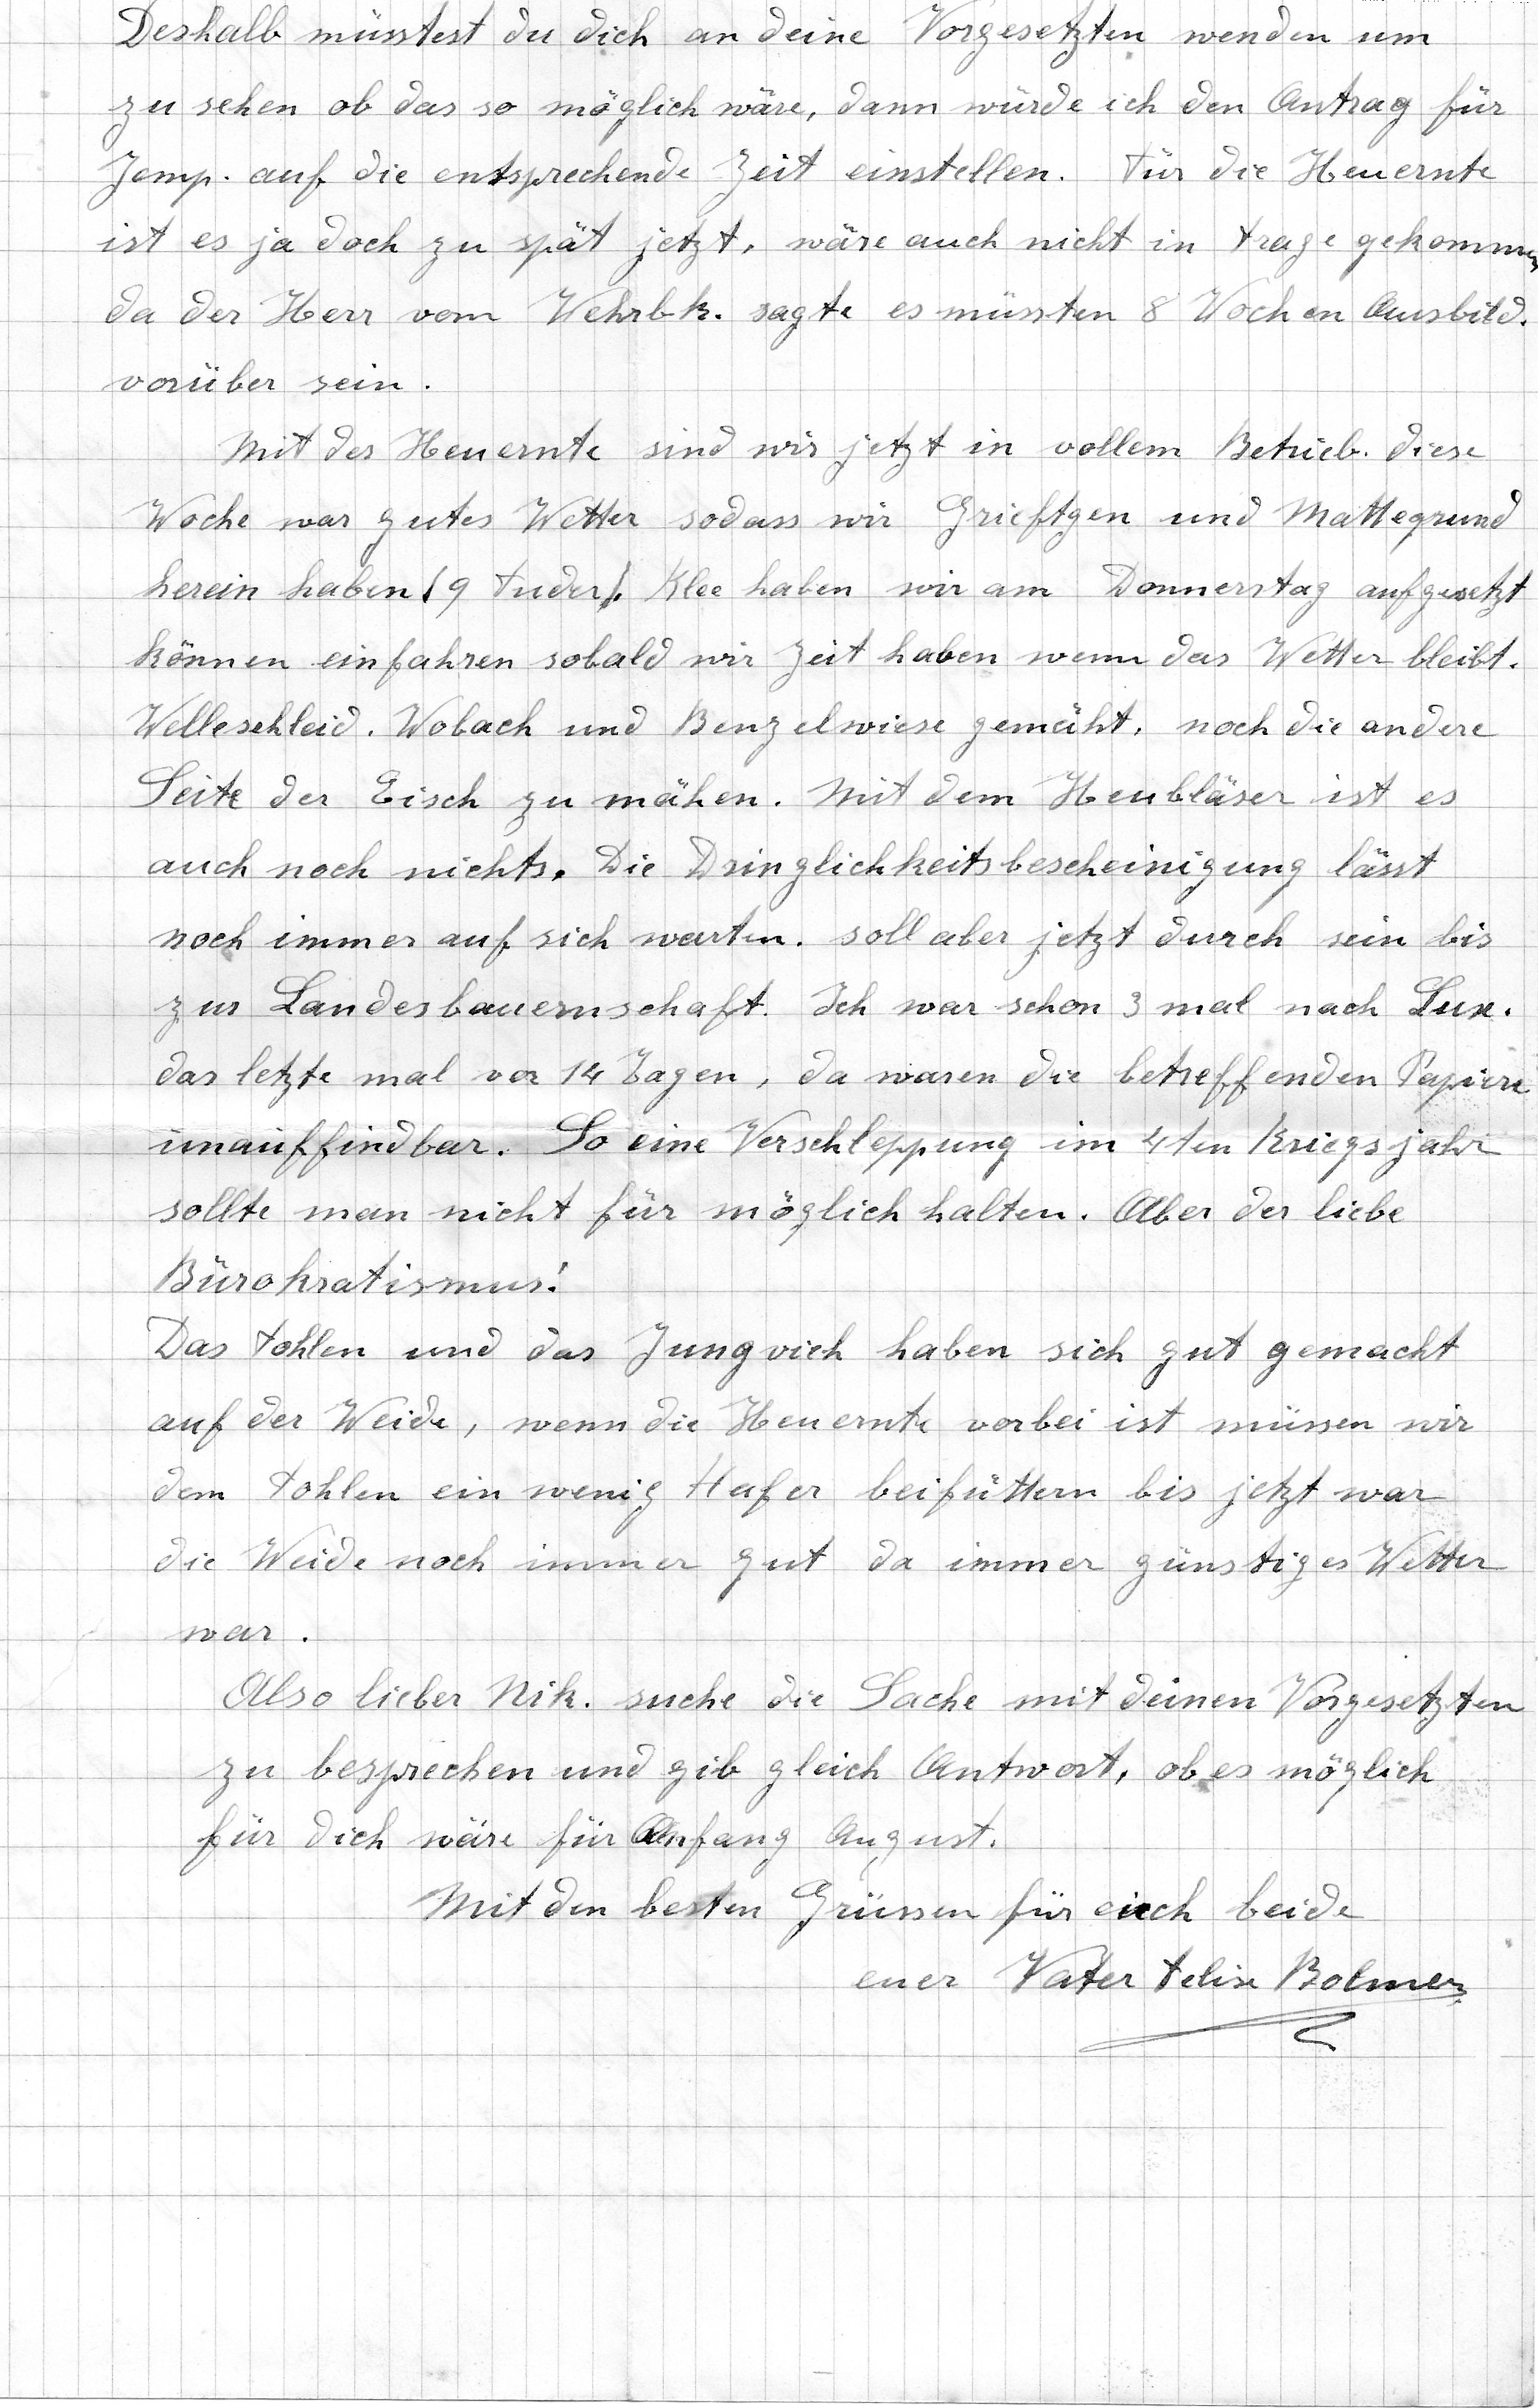 Deshalb müsstest du dich an deine Vorgesetzten wenden um
zu sehen ob das so möglich wäre, dann würde ich den Antrag für
Jemp. auf die entsprechende Zeit einstellen. Für die Heuernte
ist es ja doch zu spät jetzt, wäre auch nicht in Frage gekommen
da der Herr vom Wehrbk. sagte es müssten 8 Wochen Ausbild.
vorüber sein.
Mit der Heuernte sind wir jetzt in vollem Betrieb. diese
Woche war gutes Wetter sodass wir Grieftgen und Mattegrund
herein haben (9 Fuder). Klee haben wir am Donnerstag aufgesetzt
können einfahren sobald wir Zeit haben wenn das Wetter bleibt.
Welleschleid. Wobach und Benzelwiese gemäht, noch die andere
Seite der Eisch zu mähen. Mit dem Heubläser ist es
auch noch nichts. Die Dringlichkeitsbescheinigung lässt
noch immer auf sich warten. soll aber jetzt durch sein bis
zur Landesbauernschaft. Ich war schon 3 mal nach Lux.
das letzte mal vor 14 Tagen, da waren die betreffenden Papiere
unauffindbar. So eine Verschleppung im 4ten Kriegsjahr
sollte man nicht für möglich halten. Aber der liebe
Bürokratismus!
Das Fohlen und das Jungvieh haben sich gut gemacht
auf der Weide, wenn die Heuernte vorbei ist müssen wir
dem Fohlen ein wenig Hafer beifüttern bis jetzt war
die Weide noch immer gut da immer günstiges Wetter
war.
Also lieber Nik. suche die Sache mit deinen Vorgesetzten
zu besprechen und gib gleich Antwort, ob es möglich
für dich wäre für Anfang August.
Mit den besten Grüssen für euch beide
euer Vater Felix Bolmer